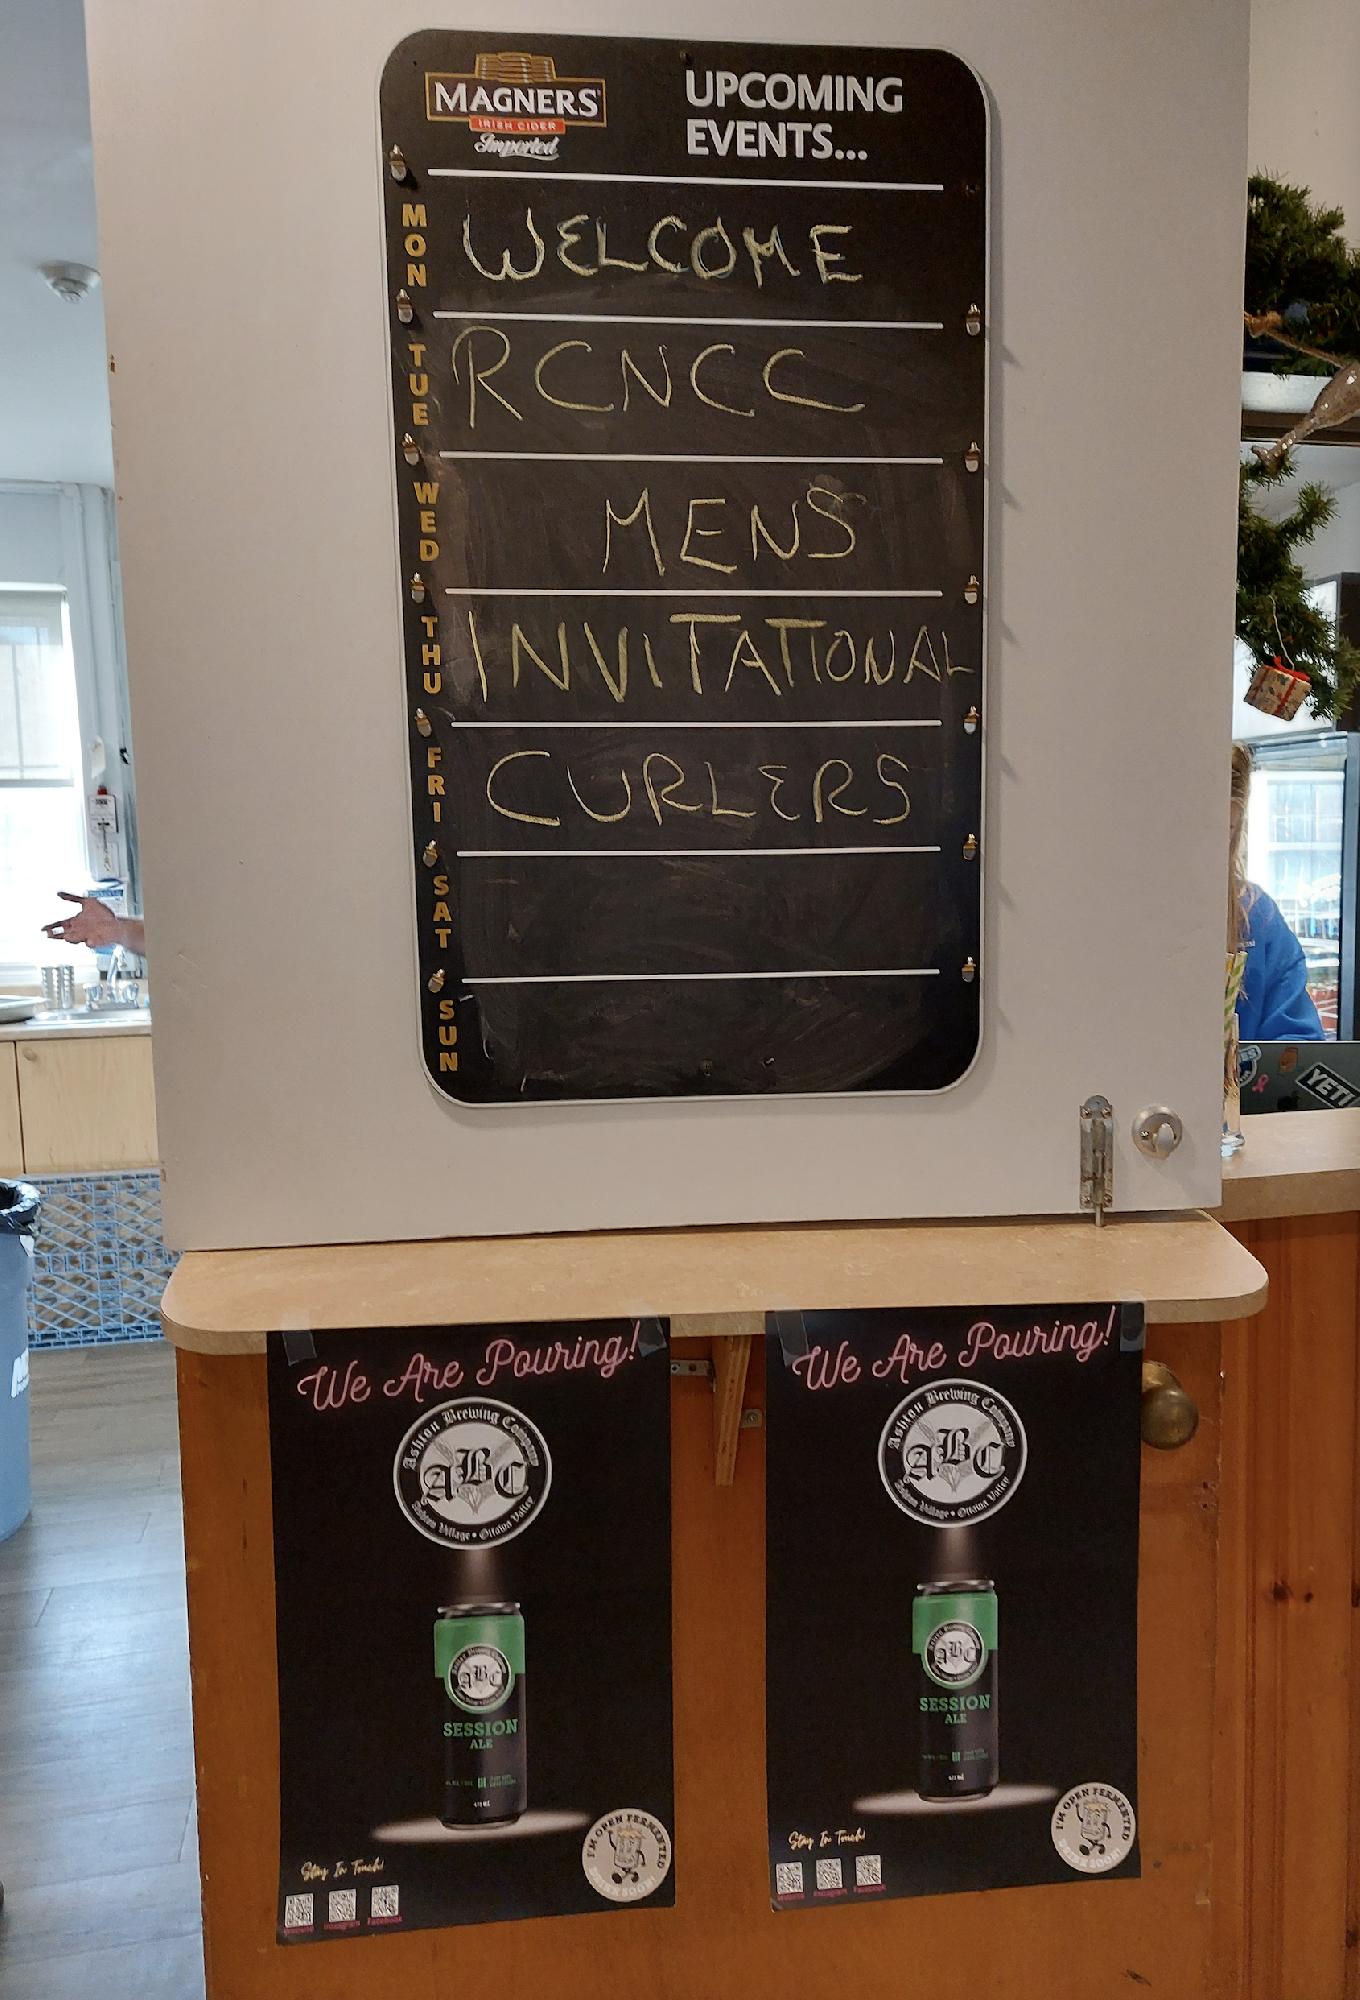 MAGNERS
IRISH CIDER
Imported
UPCOMING
EVENTS...
MON
WELCOME
TUE
RCNCC
WED
MENS
THU
INVITATIONAL
FRI
CURLERS
SAT
SUN
YETI
We Are Pouring!
Ashton Brewing Company
ABC
Ashton Village • Ottawa Valley
ABC
SESSION
ALE
473 ML
I'M OPEN FERMENTED
DRINK SOON!
Stay In Touch!
Website Instagram Facebook
We Are Pouring!
Ashton Brewing Company
ABC
Ashton Village • Ottawa Valley
ABC
SESSION
ALE
473 ML
I'M OPEN FERMENTED
DRINK SOON!
Stay In Touch!
Website Instagram Facebook